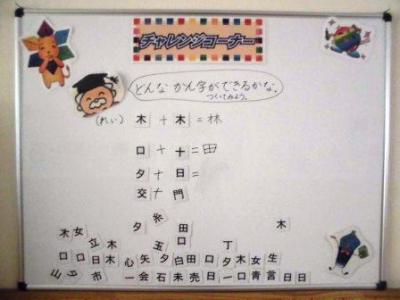 チャレンジコーナー
どんなかん字ができるかな。
つくってみよう。
(れい) 木 + 木 = 林
口 + 十 = 田
夕 + 日 =
交 + 門
夕 糸 田 木
木 女 立 木 玉 口 丁
口 口 日 木 心 矢 夕 白 田 口 夕 木 女 生
山 夕 市 一 会 石 未 売 日 一 口 青 言 日 日